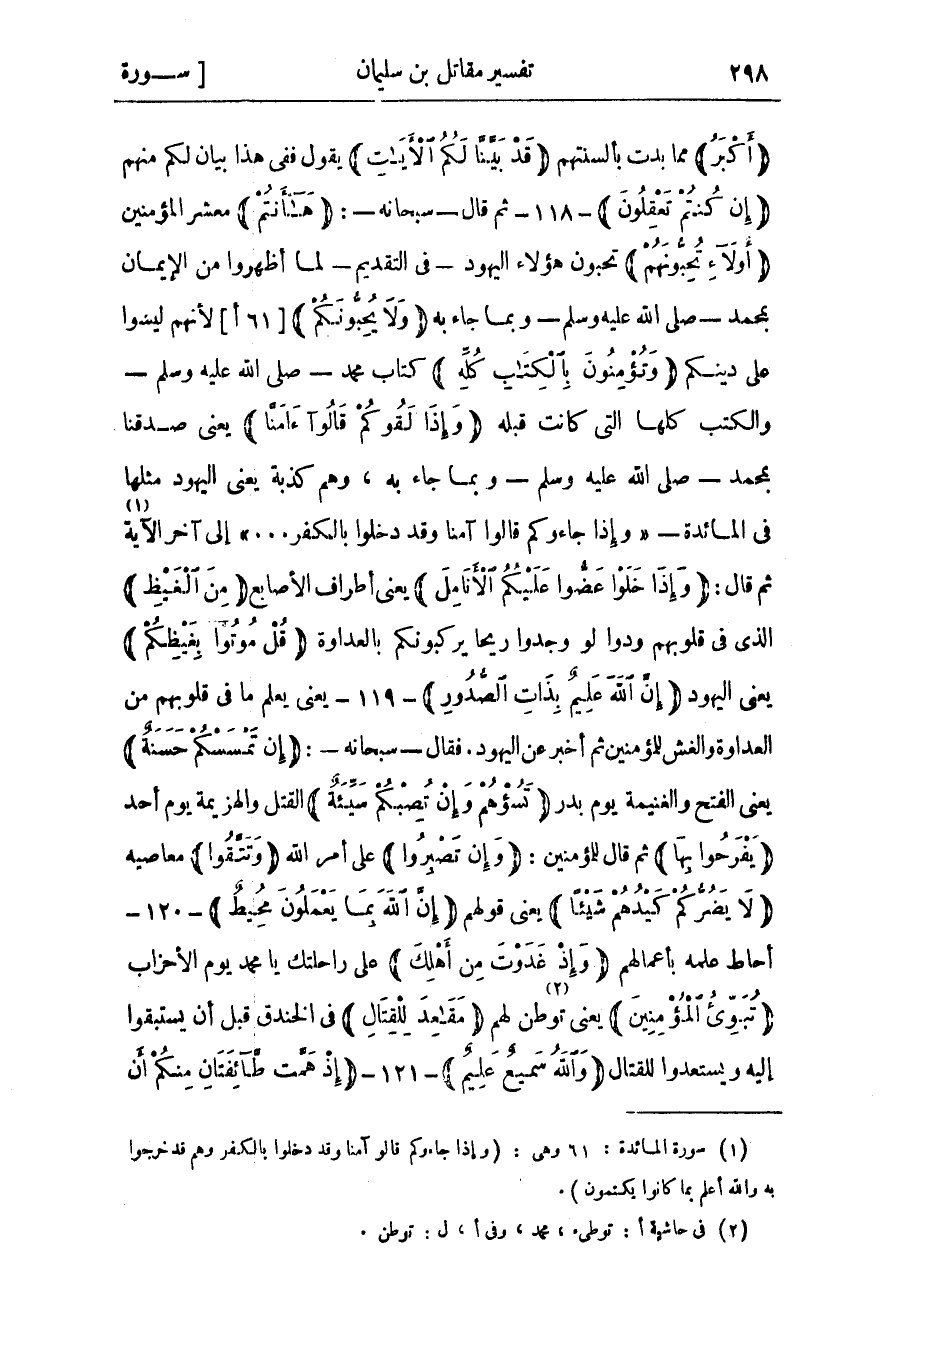 ٢٩٨ تفسير مقاتل بن سليمان [ ســورة
﴿أَكْبَرُ﴾ مما بدت بألسنتهم ﴿قَدْ بَيَّنَّا لَكُمُ ٱلْأَيَـٰتِ﴾ يقول ففى هذا بيان لكم منهم
﴿إِن كُنتُمْ تَعْقِلُونَ﴾ - ١١٨ - ثم قال — سبحانه — : ﴿هَـٰٓأَنتُمْ﴾ معشر المؤمنين
﴿أُولَآءِ تُحِبُّونَهُمْ﴾ تحبون هؤلاء اليهود — فى التقديم — لما أظهروا من الإيمان
بمحمد — صلى الله عليه وسلم — و بما جاء به ﴿وَلَا يُحِبُّونَكُمْ﴾ [ ٦١ أ ] لأنهم ليسوا
على دينكم ﴿وَتُؤْمِنُونَ بِٱلْكِتَـٰبِ كُلِّهِ﴾ كتاب محمد — صلى الله عليه وسلم —
والكتب كلها التى كانت قبله ﴿وَإِذَا لَقُوكُمْ قَالُوٓا ءَامَنَّا﴾ يعنى صدقنا
بمحمد — صلى الله عليه وسلم — و بما جاء به ، وهم كذبة يعنى اليهود مثلها
فى المائدة — « وإذا جاءوكم قالوا آمنا وقد دخلوا بالكفر ... » إلى آخر الآية (١)
ثم قال : ﴿وَإِذَا خَلَوْا عَضُّوا عَلَيْكُمُ ٱلْأَنَامِلَ﴾ يعنى أطراف الأصابع ﴿مِنَ ٱلْغَيْظِ﴾
الذى فى قلوبهم ودوا لو وجدوا ريحا يركبونكم بالعداوة ﴿قُلْ مُوتُوا بِغَيْظِكُمْ﴾
يعنى اليهود ﴿إِنَّ ٱللَّهَ عَلِيمٌ بِذَاتِ ٱلصُّدُورِ﴾ - ١١٩ - يعنى يعلم ما فى قلوبهم من
العداوة والغش للمؤمنين ثم أخبر عن اليهود . فقال — سبحانه — : ﴿إِن تَمْسَسْكُمْ حَسَنَةٌ﴾
يعنى الفتح والغنيمة يوم بدر ﴿تَسُؤْهُمْ وَإِنْ تُصِبْكُمْ سَيِّئَةٌ﴾ القتل والهزيمة يوم أحد
﴿يَفْرَحُوا بِهَا﴾ ثم قال للمؤمنين : ﴿وَإِن تَصْبِرُوا﴾ على أمر الله ﴿وَتَتَّقُوا﴾ معاصيه
﴿لَا يَضُرُّكُمْ كَيْدُهُمْ شَيْئًا﴾ يعنى قولهم ﴿إِنَّ ٱللَّهَ بِمَا يَعْمَلُونَ مُحِيطٌ﴾ - ١٢٠ -
أحاط علمه بأعمالهم ﴿وَإِذْ غَدَوْتَ مِن أَهْلِكَ﴾ على راحلتك يا محمد يوم الأحزاب
﴿تُبَوِّئُ ٱلْمُؤْمِنِينَ﴾ يعنى توطن (٢) لهم ﴿مَقَـٰعِدَ لِلْقِتَالِ﴾ فى الخندق قبل أن يستبقوا
إليه ويستعدوا للقتال ﴿وَٱللَّهُ سَمِيعٌ عَلِيمٌ﴾ - ١٢١ - ﴿إِذْ هَمَّت طَّآئِفَتَانِ مِنكُمْ أَن
(١) سورة المائدة : ٦١ وهى : ( وإذا جاءوكم قالو آمنا وقد دخلوا بالكفر وهم قد خرجوا
به والله أعلم بما كانوا يكتمون ) .
(٢) فى حاشية أ : توطىء ، محمد ، وفى أ ، ل : توطن .